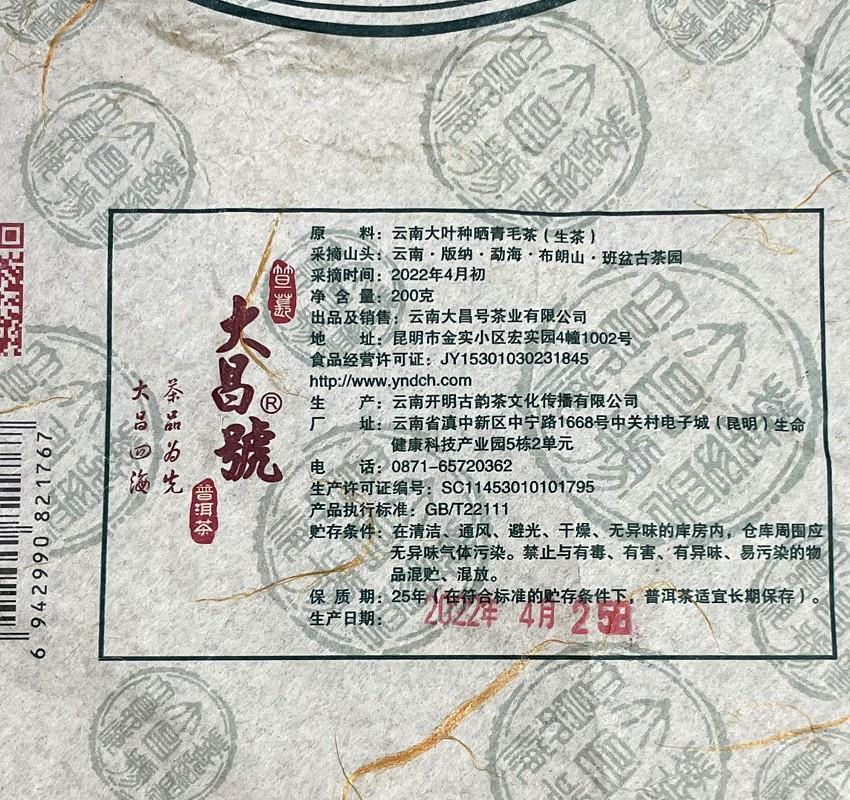 原　　料：云南大叶种晒青毛茶（生茶）
采摘山头：云南·版纳·勐海·布朗山·班盆古茶园
采摘时间：2022年4月初
净 含 量：200克
出品及销售：云南大昌号茶业有限公司
地　　址：昆明市金实小区宏实园4幢1002号
食品经营许可证：JY15301030231845
http://www.yndch.com
生　　产：云南开明古韵茶文化传播有限公司
厂　　址：云南省滇中新区中宁路1668号中关村电子城（昆明）生命
健康科技产业园5栋2单元
电　　话：0871-65720362
生产许可证编号：SC11453010101795
产品执行标准：GB/T22111
贮存条件：在清洁、通风、避光、干燥、无异味的库房内，仓库周围应
无异味气体污染。禁止与有毒、有害、有异味、易污染的物
品混贮、混放。
保 质 期：25年（在符合标准的贮存条件下，普洱茶适宜长期保存）。
生产日期：2022年 4月 25日
大昌號®
普洱茶
茶品为先
大昌四海
6 942990 821767